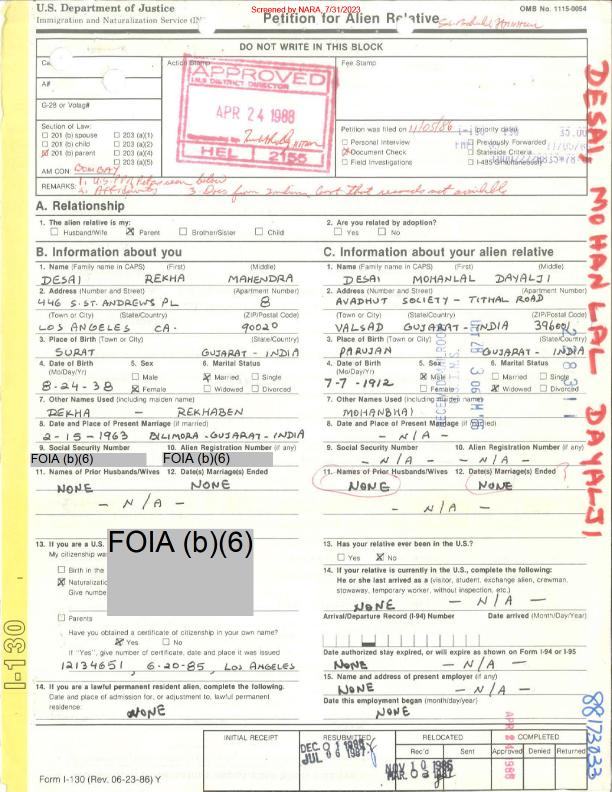 U.S. Department of Justice
Screened by NARA, 7/31/2023
OMB No. 1115-0054
Immigration and Naturalization Service (IN
Petition for Alien Relative
DO NOT WRITE IN THIS BLOCK
Action Stamp
Fee Stamp
A#
G-28 or Volag#
Section of Law:
☐ 201 (b) spouse ☐ 203 (a)(1)
☐ 201 (b) child ☐ 203 (a)(2)
☒ 201 (b) parent ☐ 203 (a)(4)
☐ 203 (a)(5)
AM CON: BOMBAY
APPROVED
I&NS DISTRICT DIRECTOR
APR 24 1988
HEL 2155
Petition was filed on 11/05/86 (priority date)
☐ Personal Interview ☐ Previously Forwarded
☒ Document Check ☐ Stateside Criteria
☐ Field Investigations ☐ I-485 Simultaneously
REMARKS: 1. U.S. PPT seen below
2. Affidavits 3. Does from Indian Govt that records not available
A. Relationship
1. The alien relative is my:
☐ Husband/Wife ☒ Parent ☐ Brother/Sister ☐ Child
2. Are you related by adoption?
☐ Yes ☐ No
B. Information about you
1. Name (Family name in CAPS) (First) (Middle)
DESAI REKHA MAHENDRA
2. Address (Number and Street) (Apartment Number)
446 S. ST. ANDREWS PL 8
(Town or City) (State/Country) (ZIP/Postal Code)
LOS ANGELES CA. 90020
3. Place of Birth (Town or City) (State/Country)
SURAT GUJARAT - INDIA
4. Date of Birth (Mo/Day/Yr) 5. Sex 6. Marital Status
☐ Male ☒ Married ☐ Single
8-24-38 ☒ Female ☐ Widowed ☐ Divorced
7. Other Names Used (including maiden name)
REKHA - REKHABEN
8. Date and Place of Present Marriage (if married)
2-15-1963 BILIMORA-GUJARAT-INDIA
9. Social Security Number 10. Alien Registration Number (if any)
FOIA (b)(6) FOIA (b)(6)
11. Names of Prior Husbands/Wives 12. Date(s) Marriage(s) Ended
NONE NONE
- N/A -
13. If you are a U.S.
My citizenship wa
☐ Birth in the
☒ Naturalizatio
Give numbe
FOIA (b)(6)
☐ Parents
Have you obtained a certificate of citizenship in your own name?
☒ Yes ☐ No
If "Yes", give number of certificate, date and place it was issued
12134651, 6-20-85, LOS ANGELES
14. If you are a lawful permanent resident alien, complete the following:
Date and place of admission for, or adjustment to, lawful permanent
residence:
NONE
C. Information about your alien relative
1. Name (Family name in CAPS) (First) (Middle)
DESAI MOHANLAL DAYALJI
2. Address (Number and Street) (Apartment Number)
AVADHUT SOCIETY - TITHAL ROAD
(Town or City) (State/Country) (ZIP/Postal Code)
VALSAD GUJARAT-INDIA 396001
3. Place of Birth (Town or City) (State/Country)
PARUJAN GUJARAT - INDIA
4. Date of Birth (Mo/Day/Yr) 5. Sex 6. Marital Status
☒ Male ☐ Married ☐ Single
7-7-1912 ☐ Female ☒ Widowed ☐ Divorced
7. Other Names Used (including maiden name)
MOHANBHAI
8. Date and Place of Present Marriage (if married)
- N/A -
9. Social Security Number 10. Alien Registration Number (if any)
- N/A - - N/A -
11. Names of Prior Husbands/Wives 12. Date(s) Marriage(s) Ended ?
NONE NONE
- N/A -
13. Has your relative ever been in the U.S.?
☐ Yes ☒ No
14. If your relative is currently in the U.S., complete the following:
He or she last arrived as a (visitor, student, exchange alien, crewman,
stowaway, temporary worker, without inspection, etc.)
NONE - N/A -
Arrival/Departure Record (I-94) Number Date arrived (Month/Day/Year)
Date authorized stay expired, or will expire as shown on Form I-94 or I-95
NONE - N/A -
15. Name and address of present employer (if any)
NONE - N/A -
Date this employment began (month/day/year)
NONE
INITIAL RECEIPT RESUBMITTED RELOCATED COMPLETED
Rec'd Sent Approved Denied Returned
DEC 01 1986
JUL 06 1987
NOV 10 1986
MAR 03 1987
APR 24 1988
Form I-130 (Rev. 06-23-86) Y
I-130
DESAI, MOHANLAL DAYALJI
88173033